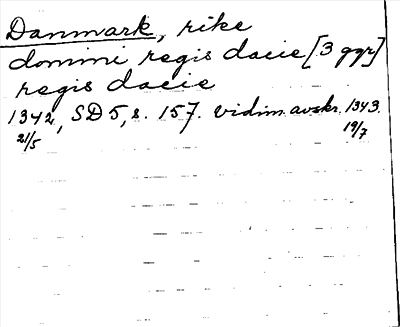 Danmark, rike
domini regis dacie [3 ggr]
regis dacie
1342, SD 5, s. 157. vidim. avskr. 1343
21/5 19/7